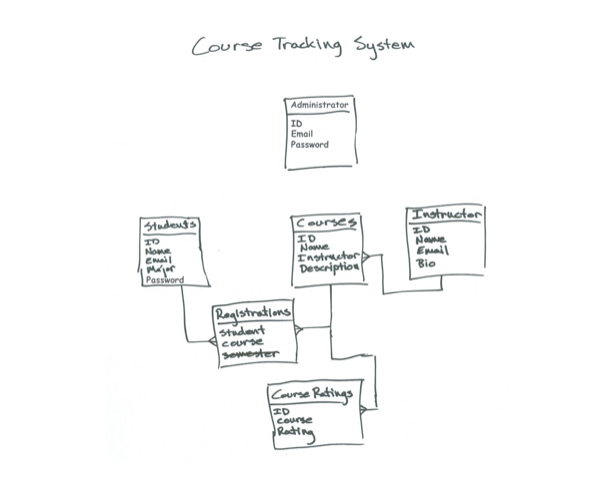 Course Tracking System
Administrator
ID
Email
Password
Students
ID
Name
Email
Major
Password
Courses
ID
Name
Instructor
Description
Instructor
ID
Name
Email
Bio
Registrations
student
course
semester
Course Ratings
ID
course
Rating